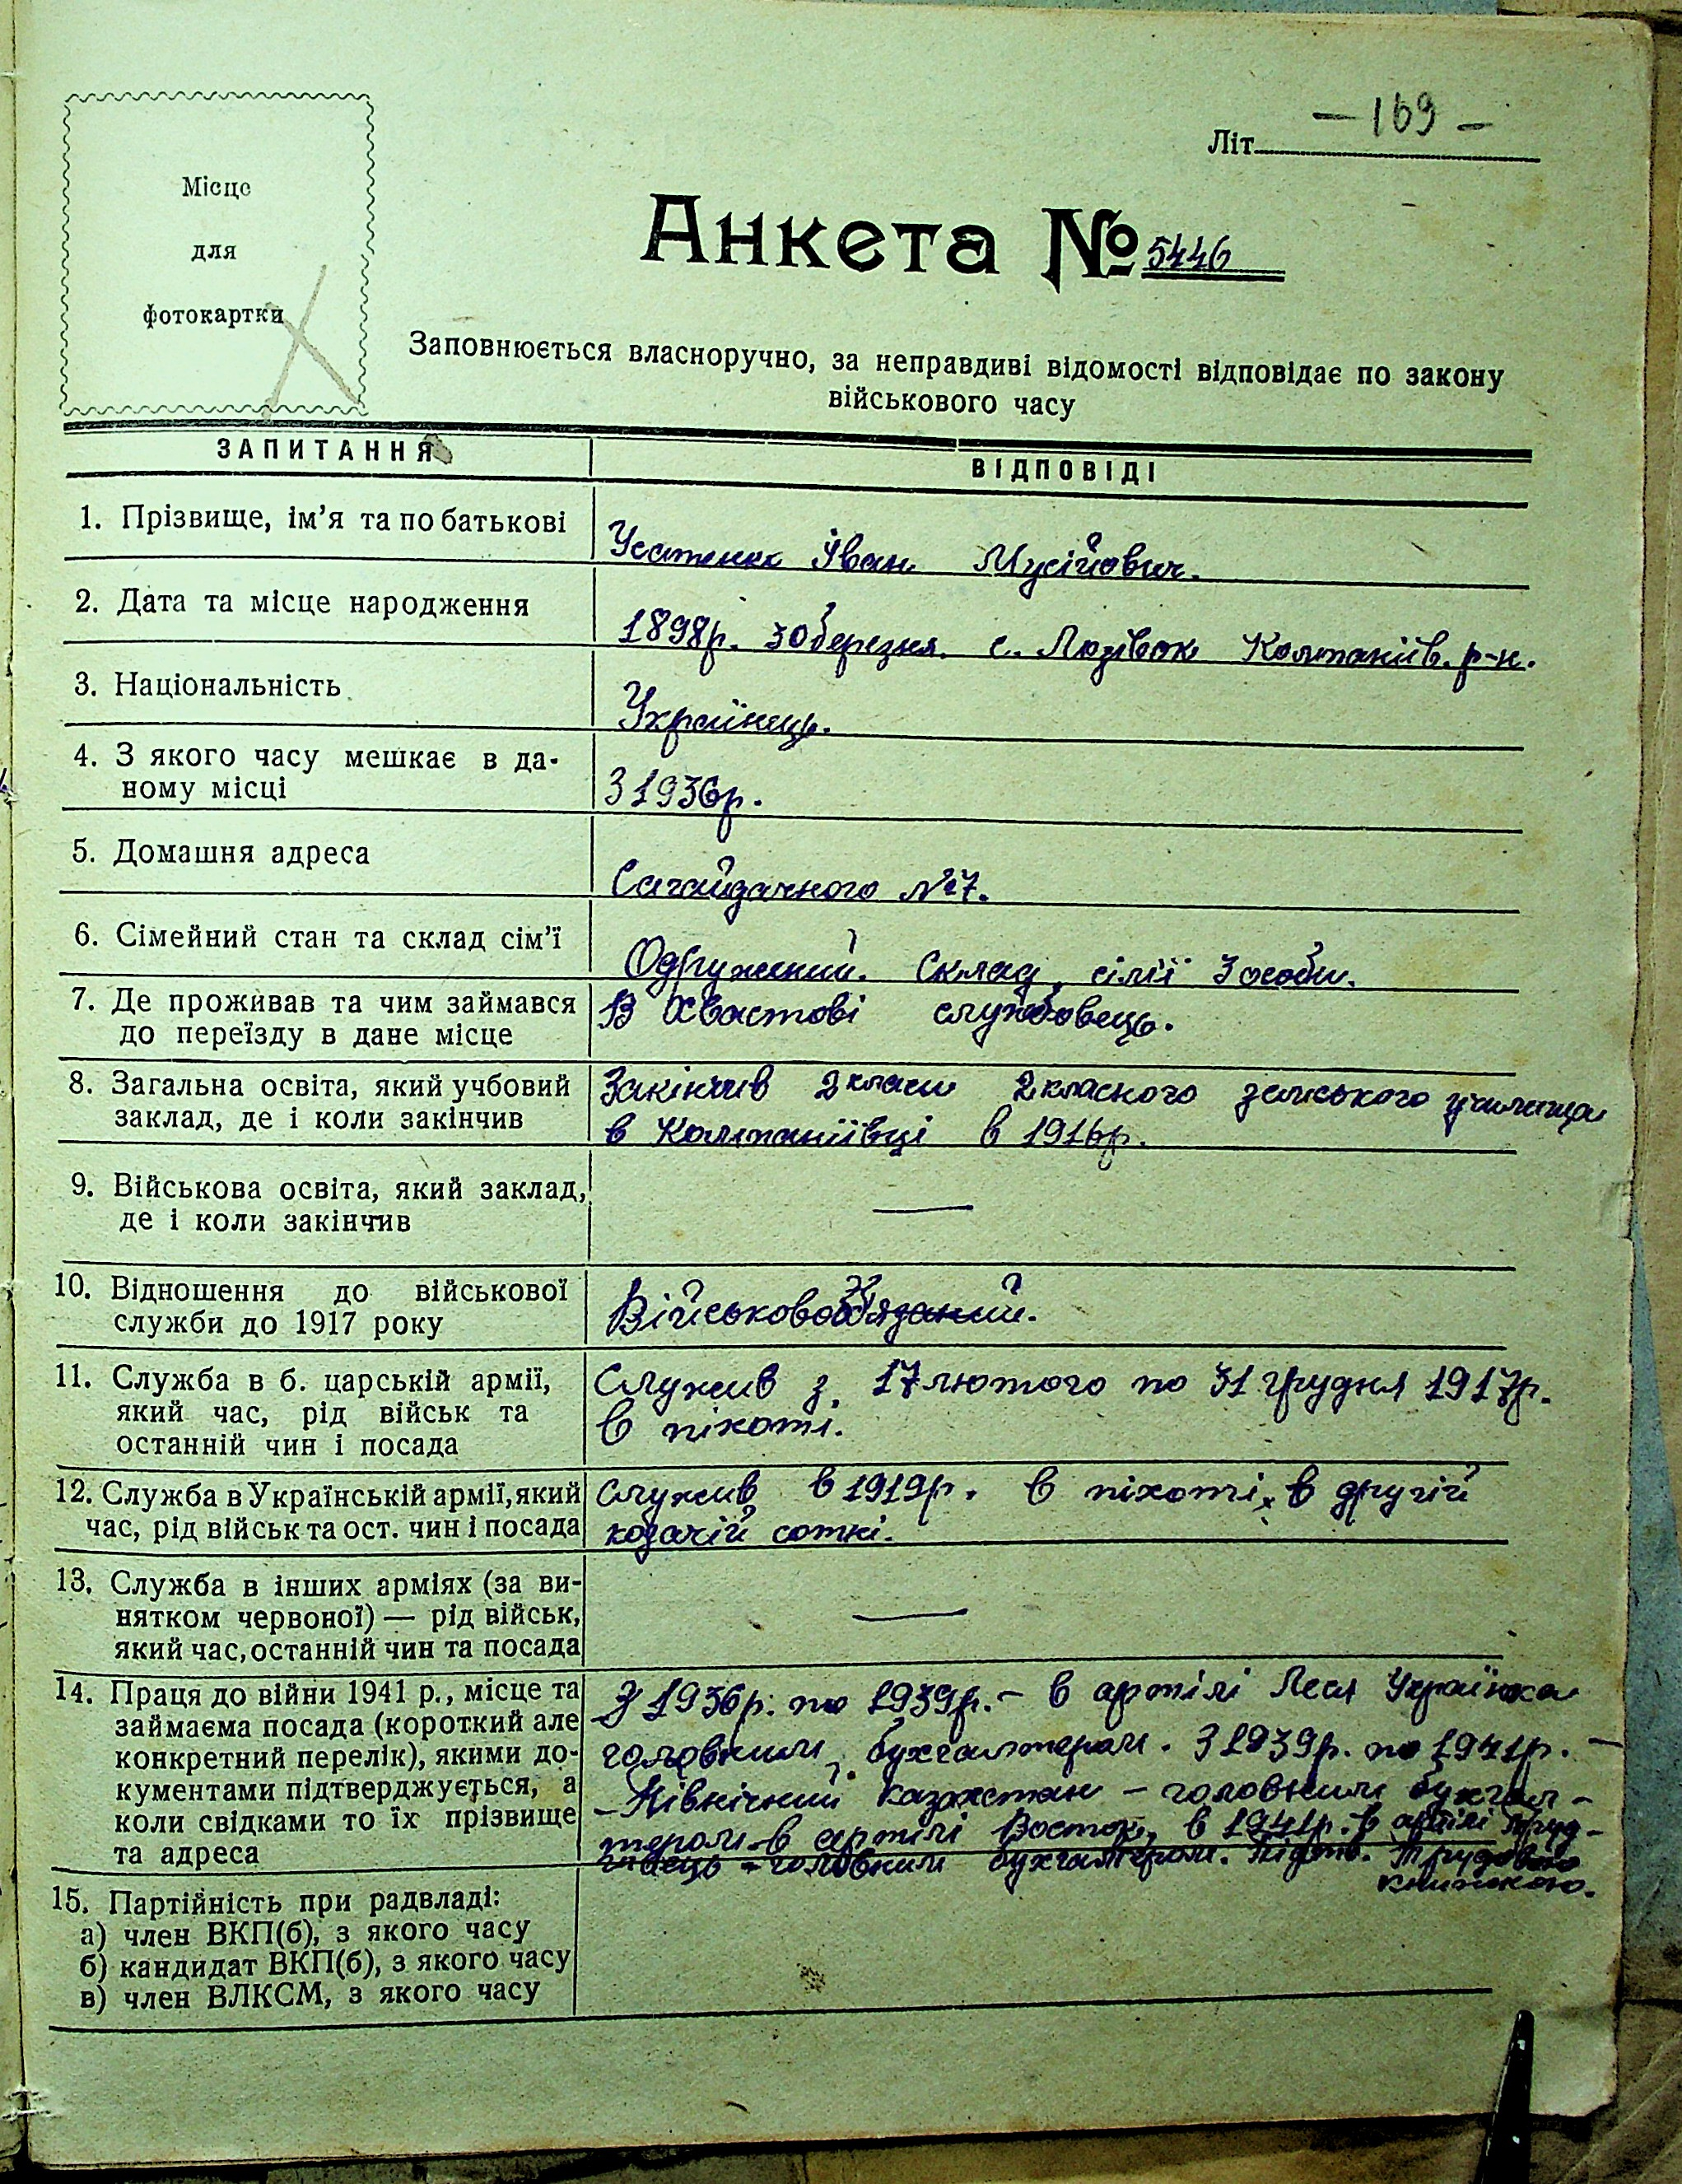 — 169 —
Літ.
Місце
для
фотокартки
Анкета № 5446
Заповнюється власноручно, за неправдиві відомості відповідає по закону
військового часу
ЗАПИТАННЯ
ВІДПОВІДІ
1. Прізвище, ім'я та по батькові
Усатенко Іван Мусійович.
2. Дата та місце народження
1898р. 30 березня. с. Лозівок Компаніїв. р-н.
3. Національність
Українець.
4. З якого часу мешкає в да-
ному місці
З 1936р.
5. Домашня адреса
Сагайдачного №7.
6. Сімейний стан та склад сім'ї
Одружений. Склад сімії 3 особи.
7. Де проживав та чим займався
до переїзду в дане місце
В Хвастові службовець.
8. Загальна освіта, який учбовий
заклад, де і коли закінчив
Закінчив 2 класи 2 класного земського училища
в Компаніївці в 1916р.
9. Військова освіта, який заклад,
де і коли закінчив
—
10. Відношення до військової
служби до 1917 року
11. Служба в б. царській армії,
який час, рід військ та
останній чин і посада
Служив з 17 лютого по 31 грудня 1917р.
в піхоті.
12. Служба в Українській армії, який
час, рід військ та ост. чин і посада
Служив в 1919р. в піхоті, в другій
козачій сотні.
13. Служба в інших арміях (за ви-
нятком червоної) — рід військ,
який час, останній чин та посада
—
14. Праця до війни 1941 р., місце та
займаєма посада (короткий але
конкретний перелік), якими до-
кументами підтверджується, а
коли свідками то їх прізвище
та адреса
З 1936р. по 1939р. – в артілі Леся Українка
головним бухгалтером. З 1939р. по 1941р. –
– Північний Казахстан – головним бухгал-
тером в артілі Восток, в 1941р. в артілі
головним бухгалтером. Підтв. Трудовою
книжкою.
15. Партійність при радвладі:
а) член ВКП(б), з якого часу
б) кандидат ВКП(б), з якого часу
в) член ВЛКСМ, з якого часу